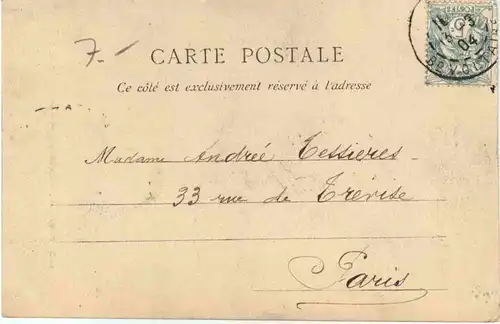 7.-
CARTE POSTALE
Ce côté est exclusivement réservé à l'adresse
Madame Andrée Tessières
33 rue de Trévise
Paris
04